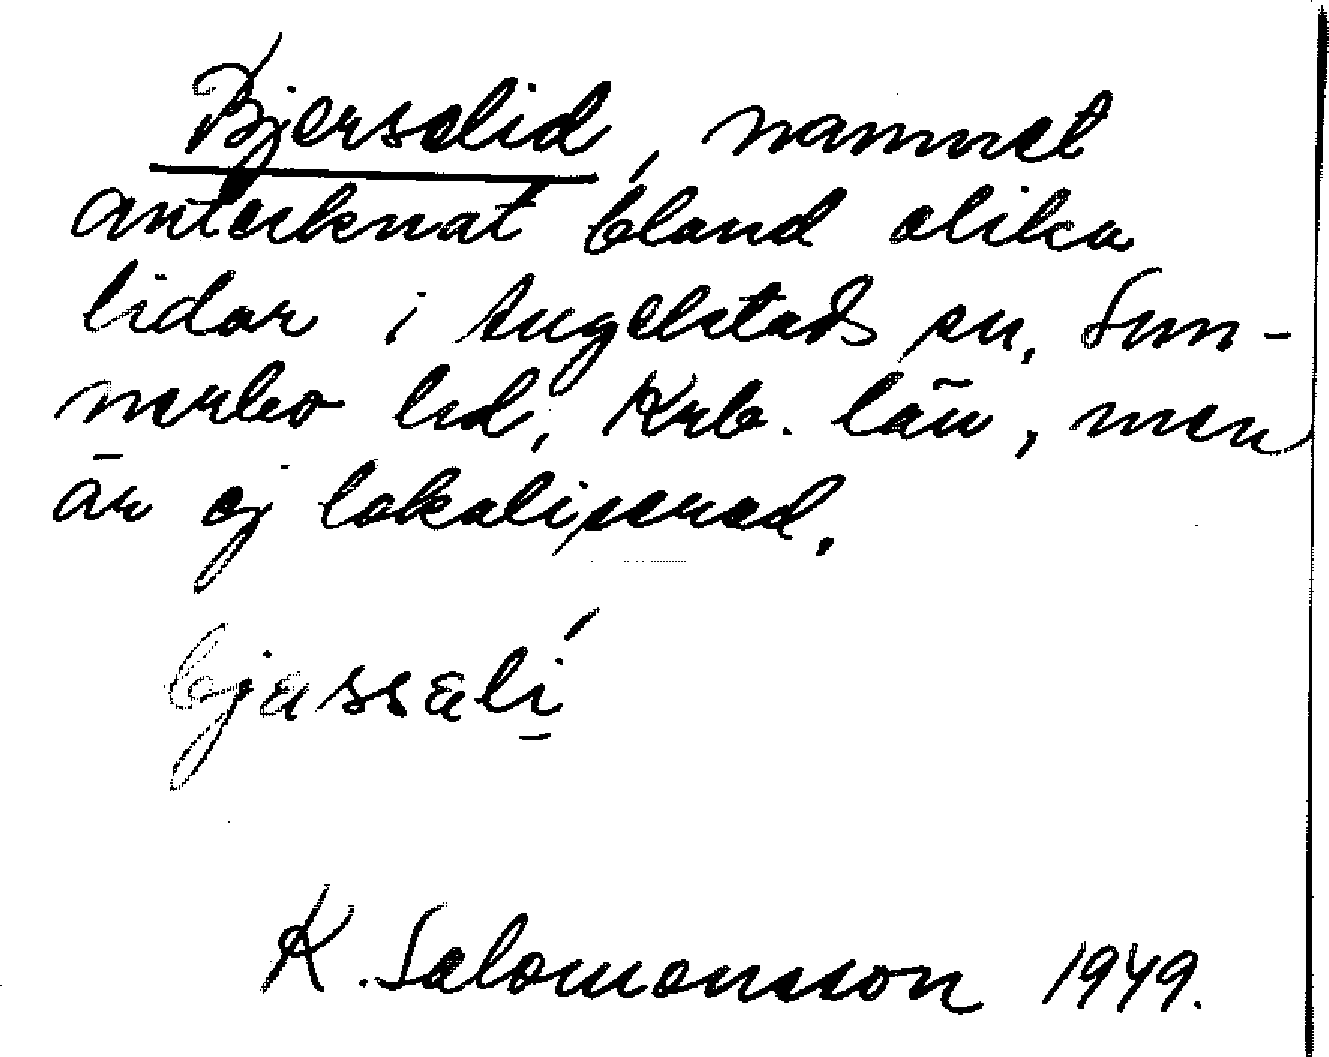 Bjerselid, namnet
antecknat bland olika
lidar i Angelstads sn, Sun-
nerbo hd, Krb. län, men
är ej lokaliserad.
bjässali
K. Salomonsson 1949.